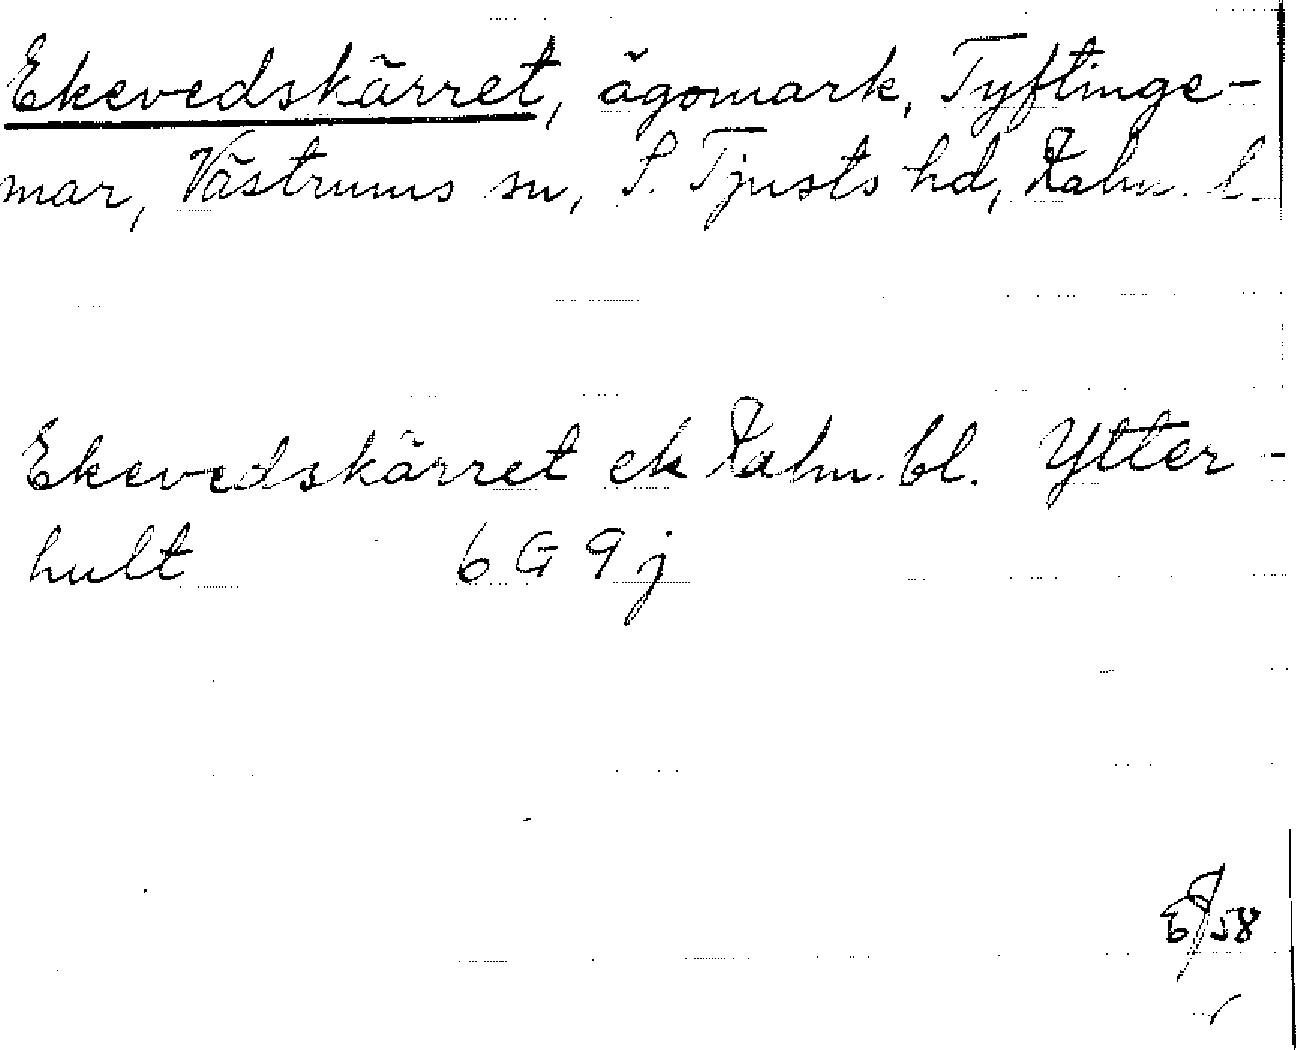 Ekevedskärret, ägomark, Tyftinge-
mar, Västrums sn, S. Tjusts hd, Kalm. l.
Ekevedskärret ek Kalm. bl. Ytter-
hult 6 G 9 j
58